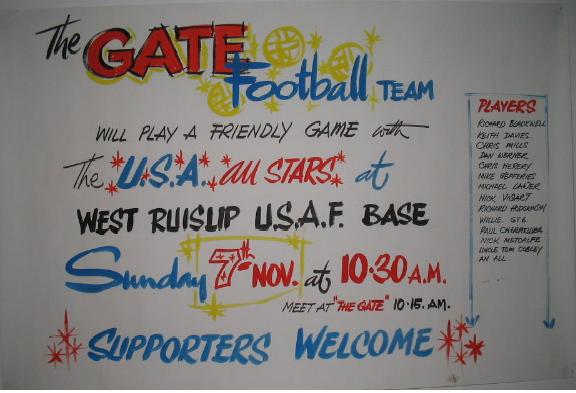 The GATE
Football TEAM
WILL PLAY A FRIENDLY GAME with
The U.S.A. All STARS at
WEST RUISLIP U.S.A.F. BASE
Sunday 7th NOV. at 10·30 A.M.
MEET AT "THE GATE" 10·15. AM.
SUPPORTERS WELCOME
PLAYERS
RICHARD BLACKWELL
KEITH DAVIES.
CHRIS MILLS
DAN WERNER
CHRIS
MIKE JEFFERIES
MICHAEL
NICK
RICHARD
WILLIE.
PAUL
NICK METCALFE
UNCLE TOM COBLEY
AN ALL.